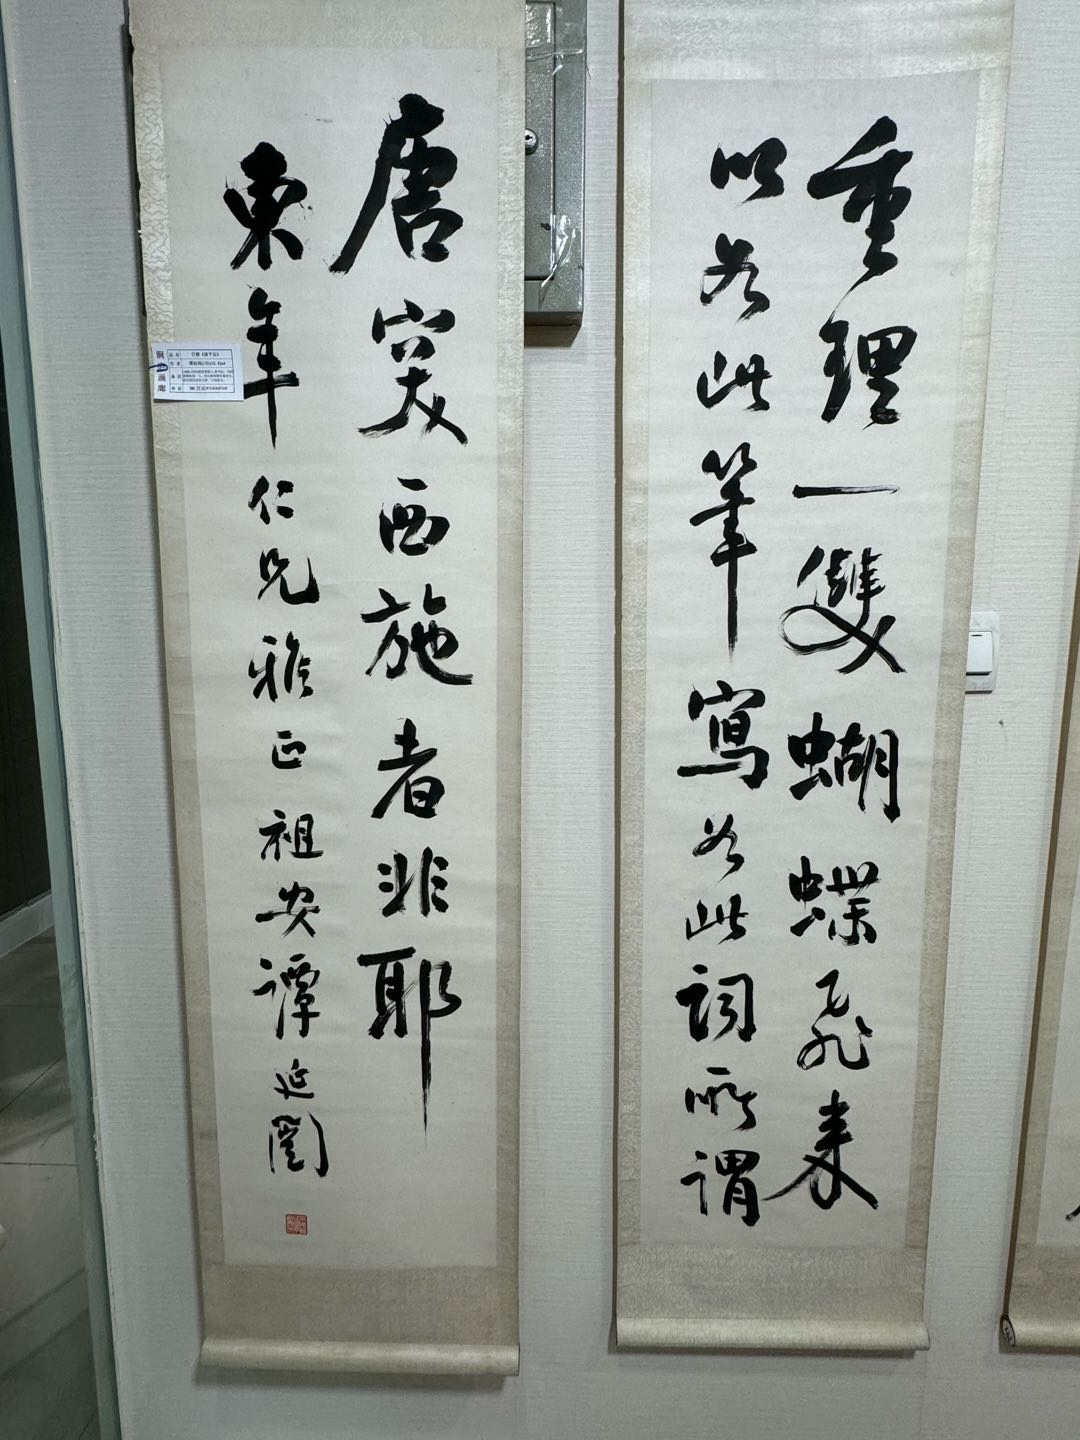 重理一雙蝴蝶飛来
以若此筆寫若此詞所謂
唐突西施者非耶
東年仁兄雅正祖安譚延闓